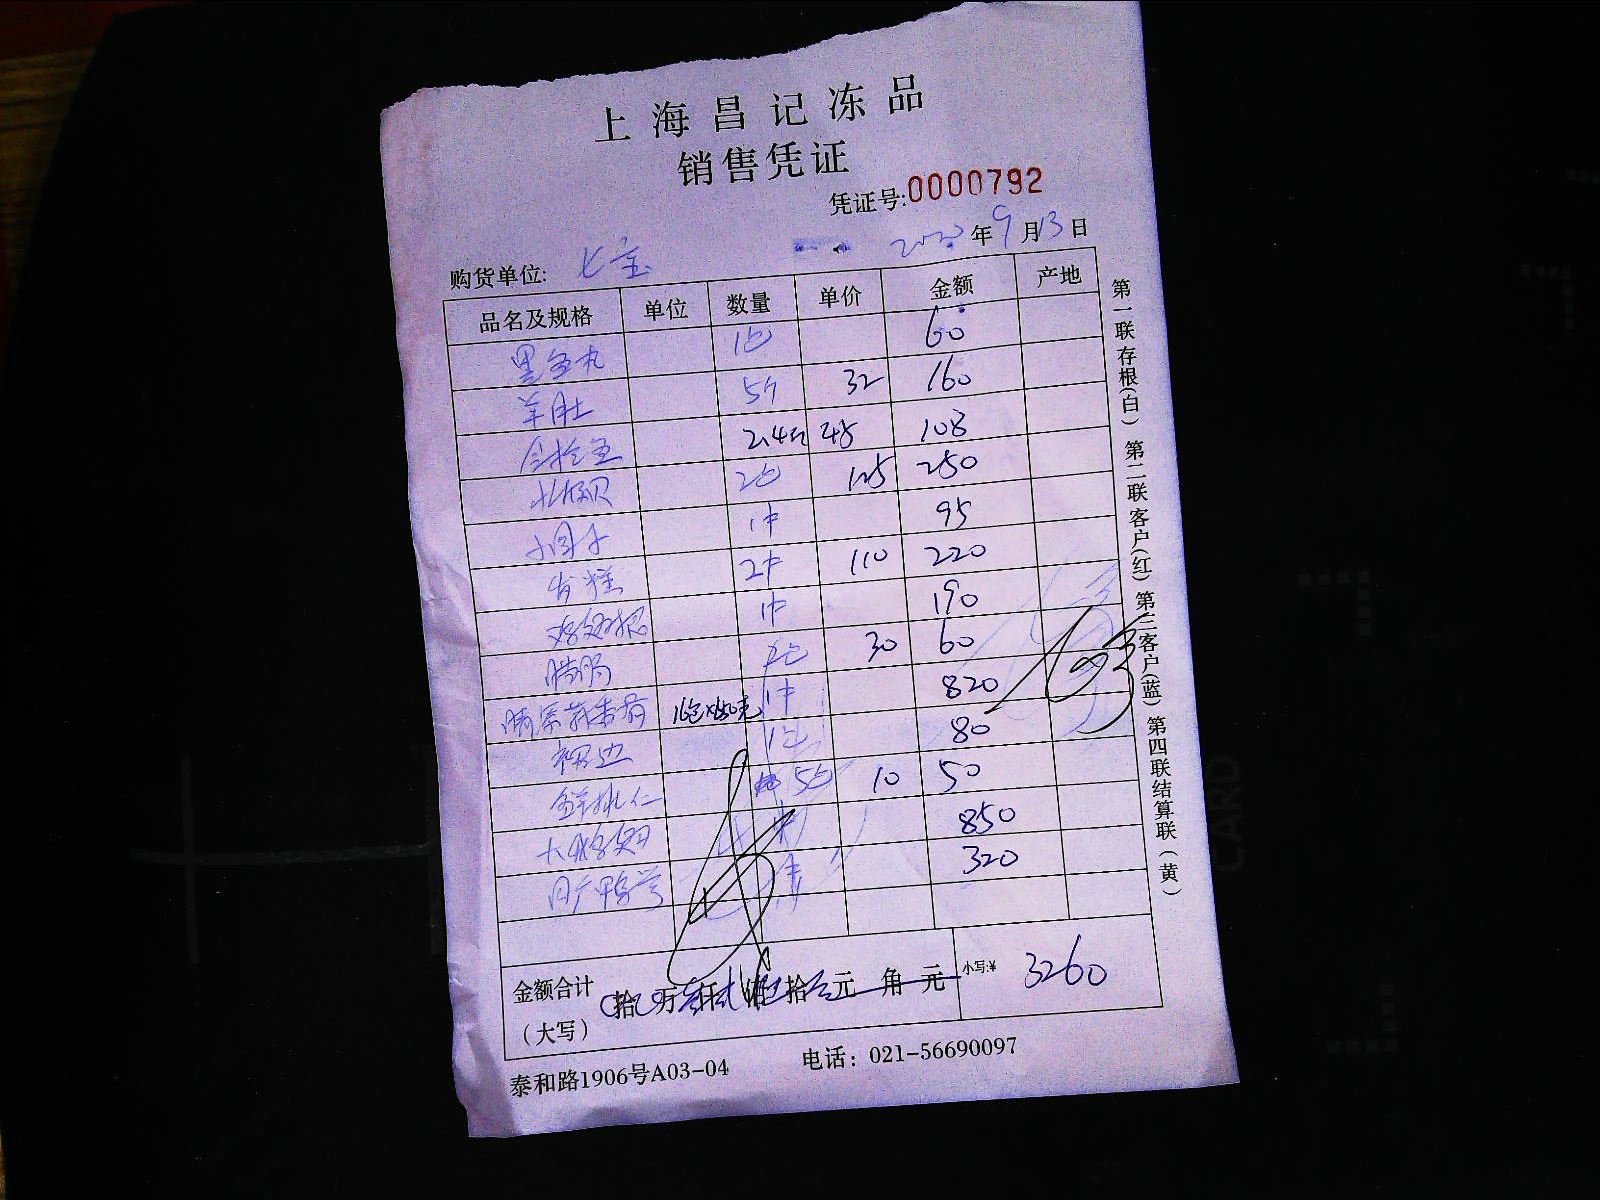 上海昌记冻品
销售凭证
凭证号:0000792
2020年9月13日
购货单位: 七宝
品名及规格 单位 数量 单价 金额 产地
黑鱼丸 1包 60
羊肚 5斤 32 160
2.4斤 45 108
北极贝 2包 125 250
小圆子 1件 95
发糕 2件 110 220
鸡翅根 1件 190
腊肠 2包 30 60
16包×150克 1件 820
裙边 1包 80
鲜桃仁 5包 10 50
850
320
金额合计
(大写)
拾 万 仟 佰 拾 元 角 元 小写:¥ 3260
泰和路1906号A03-04 电话: 021-56690097
第一联存根(白) 第二联客户(红) 第三客户(蓝) 第四联结算联(黄)